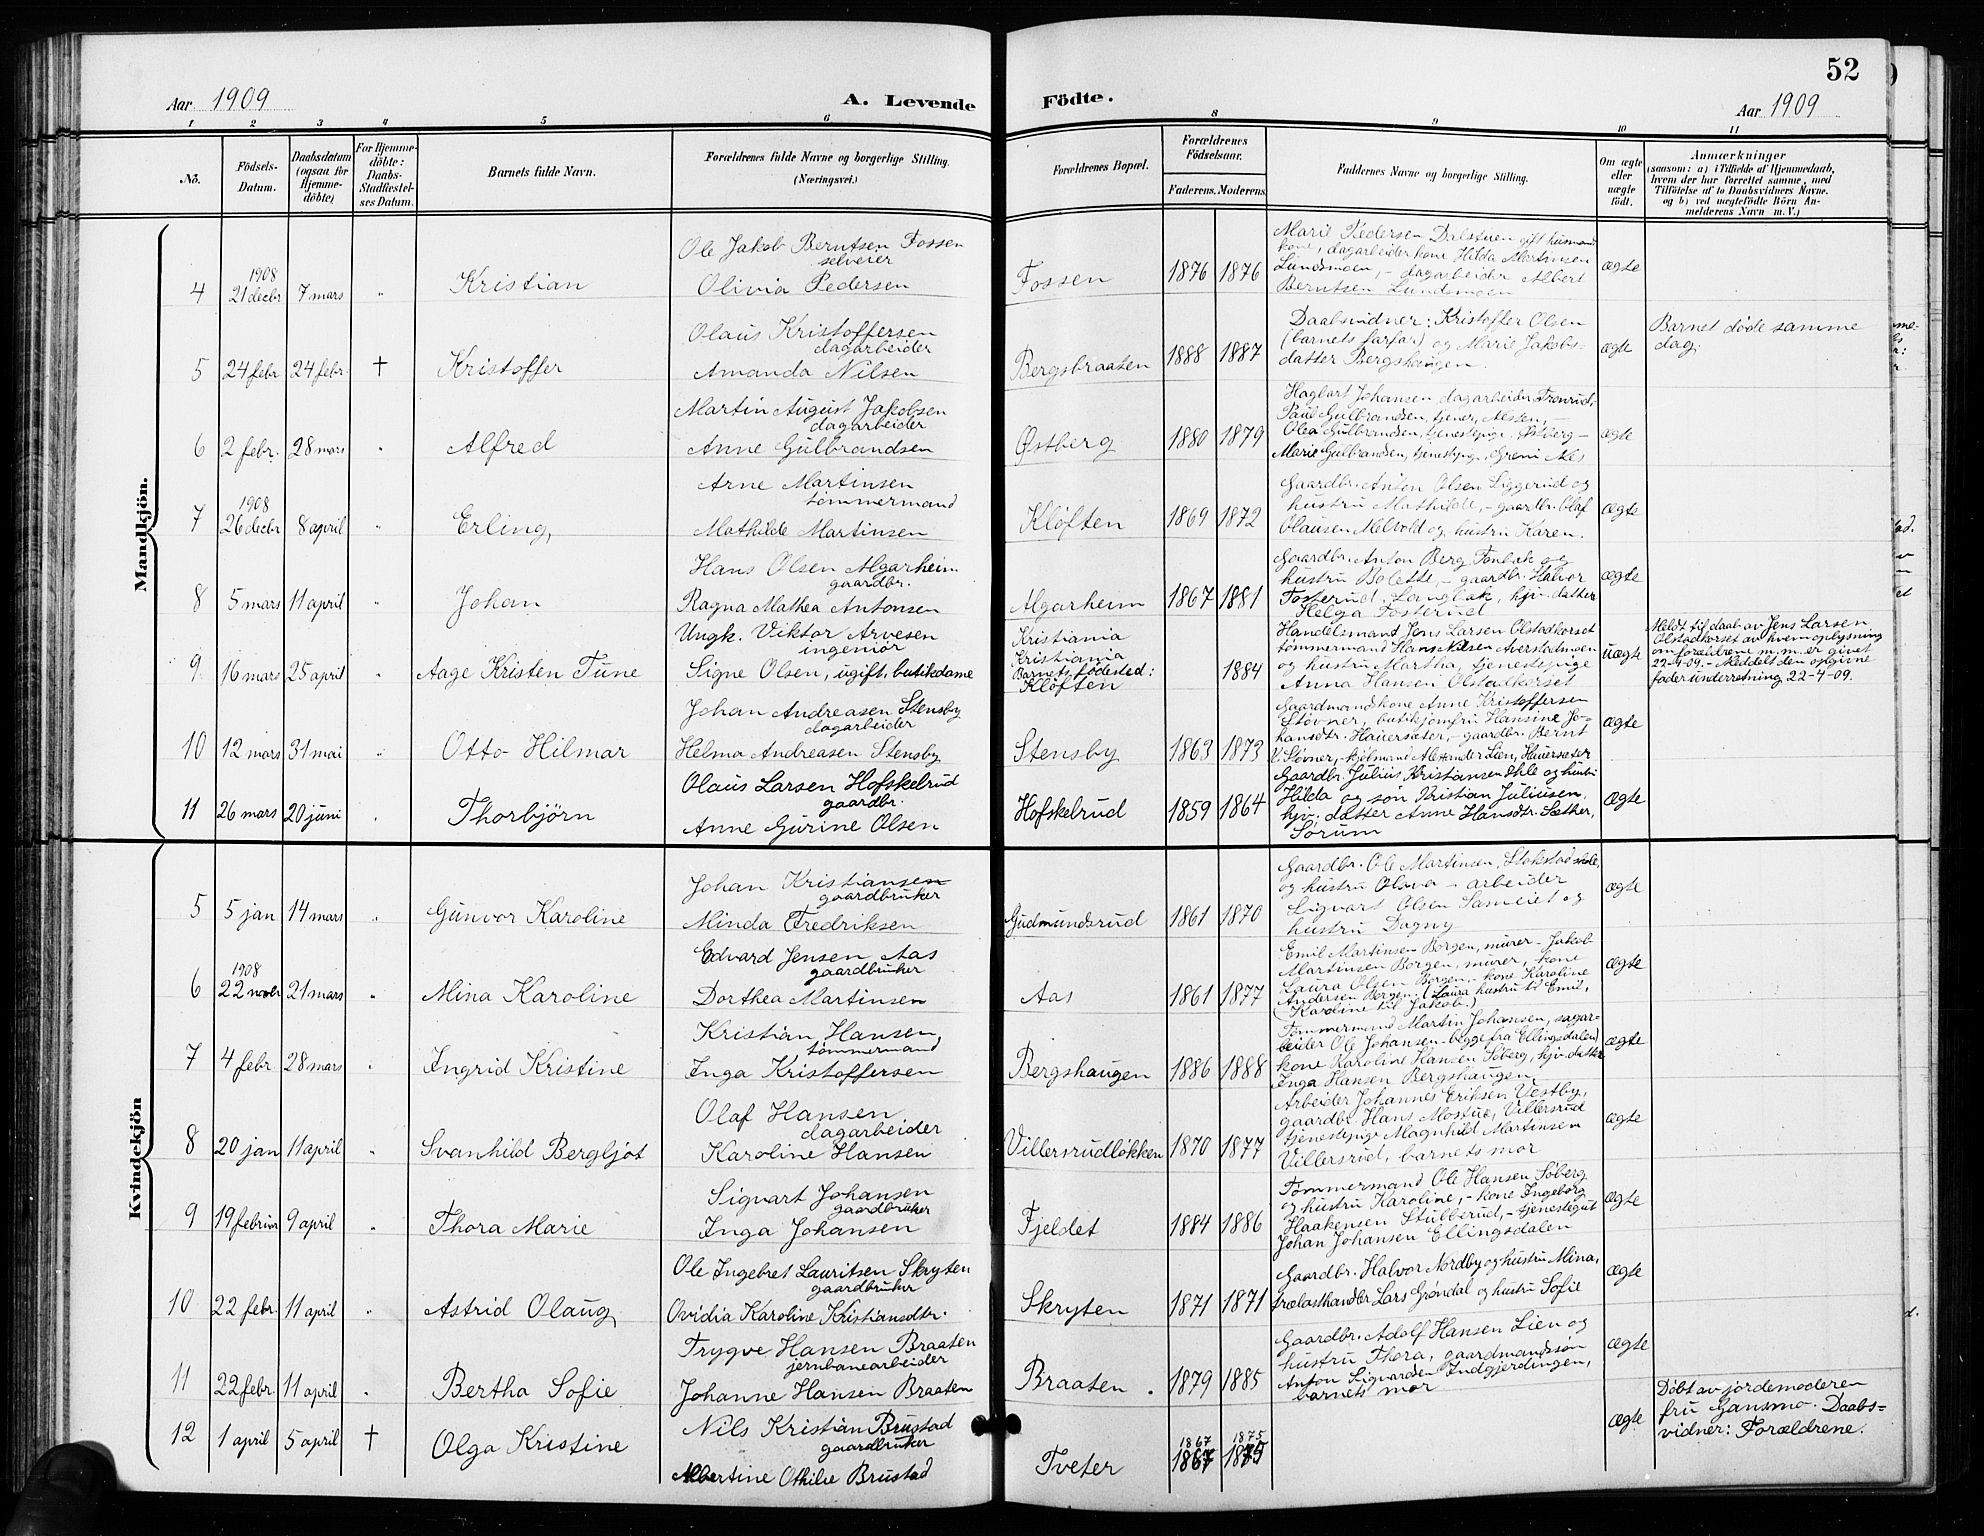 52
Aar 1909
A. Levende
Födte.
Aar 1909
1 2 3 4 5 6 8 9 10 11
No.
Födsels-
Datum.
Daabsdatum
(ogsaa for
Hjemme-
döbte)
For Hjemme-
döbte:
Daabs-
Stadfæstel-
ses Datum.
Barnets fulde Navn.
Forældrenes fulde Navne og borgerlige Stilling.
(Næringsvei.)
Forældrenes Bopæl.
Forældrenes
Födselsaar.
Faderens. Moderens.
Faddernes Navne og borgerlige Stilling.
Om ægte
eller
uægte
födt.
Anmærkninger
(saasom: a) i Tilfælde af Hjemmedaab,
hvem der har forrettet samme, med
Tilföielse af to Daabsvidners Navne.
og b) ved uægtefödte Börn An-
melderens Navn m. V.)
Mandkjön.
4
1908
21 decbr
7 mars
"
Kristian
Ole Jakob Berntsen Fossen
selveier
Olivia Pedersen
Fossen
1876 1876
Marit Pedersen Dalstuen gift husmand
kone, dagarbeider kone Hilda Martinsen
Lundsmoen, - dagarbeider Albert
Berntsen Lundsmoen
ægte
5
24 febr
24 febr.
†
Kristoffer
Olaus Kristoffersen
dagarbeider
Amanda Nilsen
Bergsbraaten
1888 1887
Daabsvidner: Kristoffer Olsen
(barnets farfar) og Marie Jakobs-
datter Bergshaugen.
ægte
Barnet døde samme
dag.
6
2 febr.
28 mars
"
Alfred
Martin August Jakobsen
dagarbeider
Anne Gulbrandsen
Østberg
1880 1879
Hagbart Johansen dagarbeider, Tronrud,
Paul Gulbrandsen, tjener, Nesten, -
Olea Gulbrandsen, tjenestepige, Østberg -
Marie Gulbrandsen, tjenestepige, Greni Nes
ægte
7
1908
26 decbr
8 april
"
Erling,
Arne Martinsen
tømmermand
Mathilde Martinsen
Kløften
1869 1872
Gaardbr. Anton Olsen Liggerud og
hustru Mathilde, - gaardbr. Olaf
Olausen Melvold og hustru Karen.
ægte
8
5 mars
11 april
"
Johan
Hans Olsen Algarheim
gaardbr.
Ragna Mathea Antonsen
Algarheim
1867 1881
Gaardbr. Anton Berg Fonbæk og
hustru Bolette, - gaardbr. Halvor
Fosterud, Langbak, hjv. datter
Helga Fosterud
ægte
9.
16 mars
25 april
"
Aage Kristen Tune
Ungk. Viktor Arvesen
ingeniør
Signe Olsen, ugift, butikdame
Kristiania
Kristiania
Barnets fødested:
Kløften
1884
Handelsmand Jens Larsen Olstadkorset
tømmermand Hans Nilsen Averstadmoen
og hustru Martha, tjenestepige
Anna Hansen Olstadkorset
uægte
Meldt til daab av Jens Larsen
Olstadkorset av hvem oplysning
om forældrene m.m. er givet
22-4-09. - Meddelt den opgivne
fader underretning 22-4-09.
10
12 mars
31 mai
"
Otto Hilmar
Johan Andreasen Stensby
dagarbeider
Helma Andreasen Stensby
Stensby
1863 1873
Gaardmandskone Anne Kristoffersen
Støvner, butikjomfru Hansine Jo-
hansdtr. Hauersæter, - gaardbr. Bernt
K. Støvner, - hjulmand Alexander Lien, Hauersæter
ægte
11
26 mars
20 juni
"
Thorbjörn
Olaus Larsen Hofskelrud
gaardbr.
Anne Gurine Olsen
Hofskelrud
1859 1864
Gaardbr. Julius Kristiansen Ihle og hustru
Hilda og søn Kristian Juliusen,
hjv. datter Anne Hansdtr. Sæther,
Sørum
ægte
Kvindekjön
5
5 jan
14 mars
"
Gunvor Karoline
Johan Kristiansen
gaardbruker
Minda Fredriksen
Gudmundsrud
1861 1870
Gaardbr. Ole Martinsen, Stokstad skole,
og hustru Olava - arbeider
Sigvart Olsen Sameiet og
hustru Dagny
ægte
6
1908
22 novbr
21 mars
"
Mina Karoline
Edvard Jensen Aas
gaardbruker
Dorthea Martinsen
Aas
1861 1877
Emil Martinsen Borgen, murer - Jakob
Martinsen Borgen, murer, - kone
Laura Olsen Borgen, - kone Karoline
Andersen Borgen. (Laura hustru til Emil,
Karoline til Jakob.)
ægte
7
4 febr
28 mars
"
Ingrid Kristine
Kristian Hansen
tømmermand
Inga Kristoffersen
Bergshaugen
1886 1888
Tømmermand Martin Johansen, sagar-
beider Ole Johansen - begge fra Ellingsdalen,
kone Karoline Hansen Søberg, hjv. datter
Inga Hansen Bergshaugen
ægte
8
20 jan
11 april
"
Svanhild Bergljot
Olaf Hansen
dagarbeider
Karoline Hansen
Villersrudløkken
1870 1877
Arbeider Johannes Eriksen Vestby,
gaardbr. Hans Mostue, Villersrud
tjenestepige Magnhild Martinsen
Villersrud, barnets mor
ægte
9
19 februar
9 april
"
Thora Marie
Sigvart Johansen
gaardbruker
Inga Johansen
Fjeldet
1884 1886
Tømmermand Ole Hansen Søberg
og hustru Karoline, - kone Ingeborg
Haakensen Stubberud, - tjenestegut
Johan Johansen Ellingsdalen
ægte
10
22 febr.
11 april
"
Astrid Olaug,
Ole Ingebret Lauritsen Skryten
gaardbruker
Ovidia Karoline Kristiansdtr.
Skryten
1871 1871
Gaardbr. Halvor Nordby og hustru Mina,
trælasthandler Lars Grøndal og hustru Sofie
ægte
11
22 febr.
11 april
"
Bertha Sofie
Trygve Hansen Braaten
jernbanearbeider
Johanne Hansen Braaten
Braaten.
1879 1885
Gaardbr. Adolf Hansen Lien og
hustru Thora, gaardmandssøn
Anton Sigvardsen Indgjerdingen,
barnets mor
ægte
12
1 april
5 april
†
Olga Kristine
Nils Kristian Brustad
gaardbruker
Albertine Othilie Brustad
Tveter
1867 1875
1867 1875
ægte
Døbt av jordemoderen
fru Gansmo. Daabs-
vidner: Forældrene.